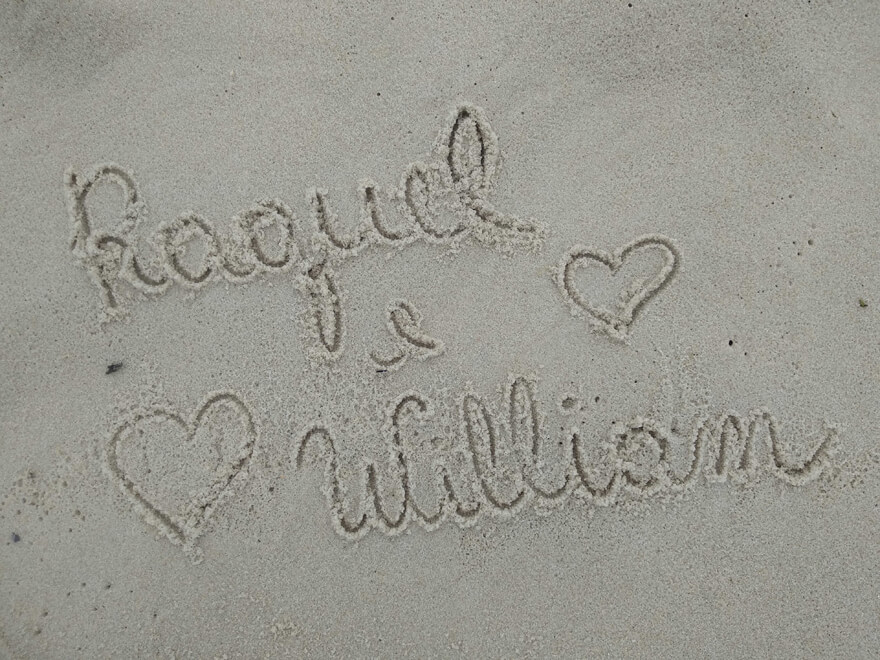 Raquel
e
William